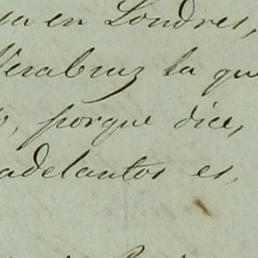 ya en Londres,
Verabruz la que
porque dice,
adelantos es,